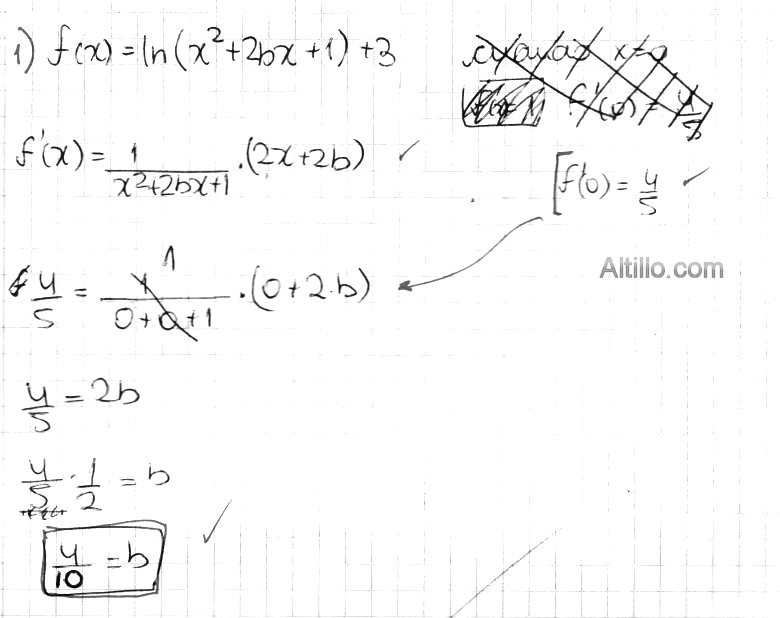 1) f(x) = ln(x²+2bx+1)+3
x=0
f'(0) = 4/5
f'(x) = 1/(x²+2bx+1) . (2x+2b) ✓
[f'(0) = 4/5 ✓
Altillo.com
4/5 = 1/(0+0+1) . (0+2.b)
1
4/5 = 2b
4/5 . 1/2 = b
4/10 = b ✓